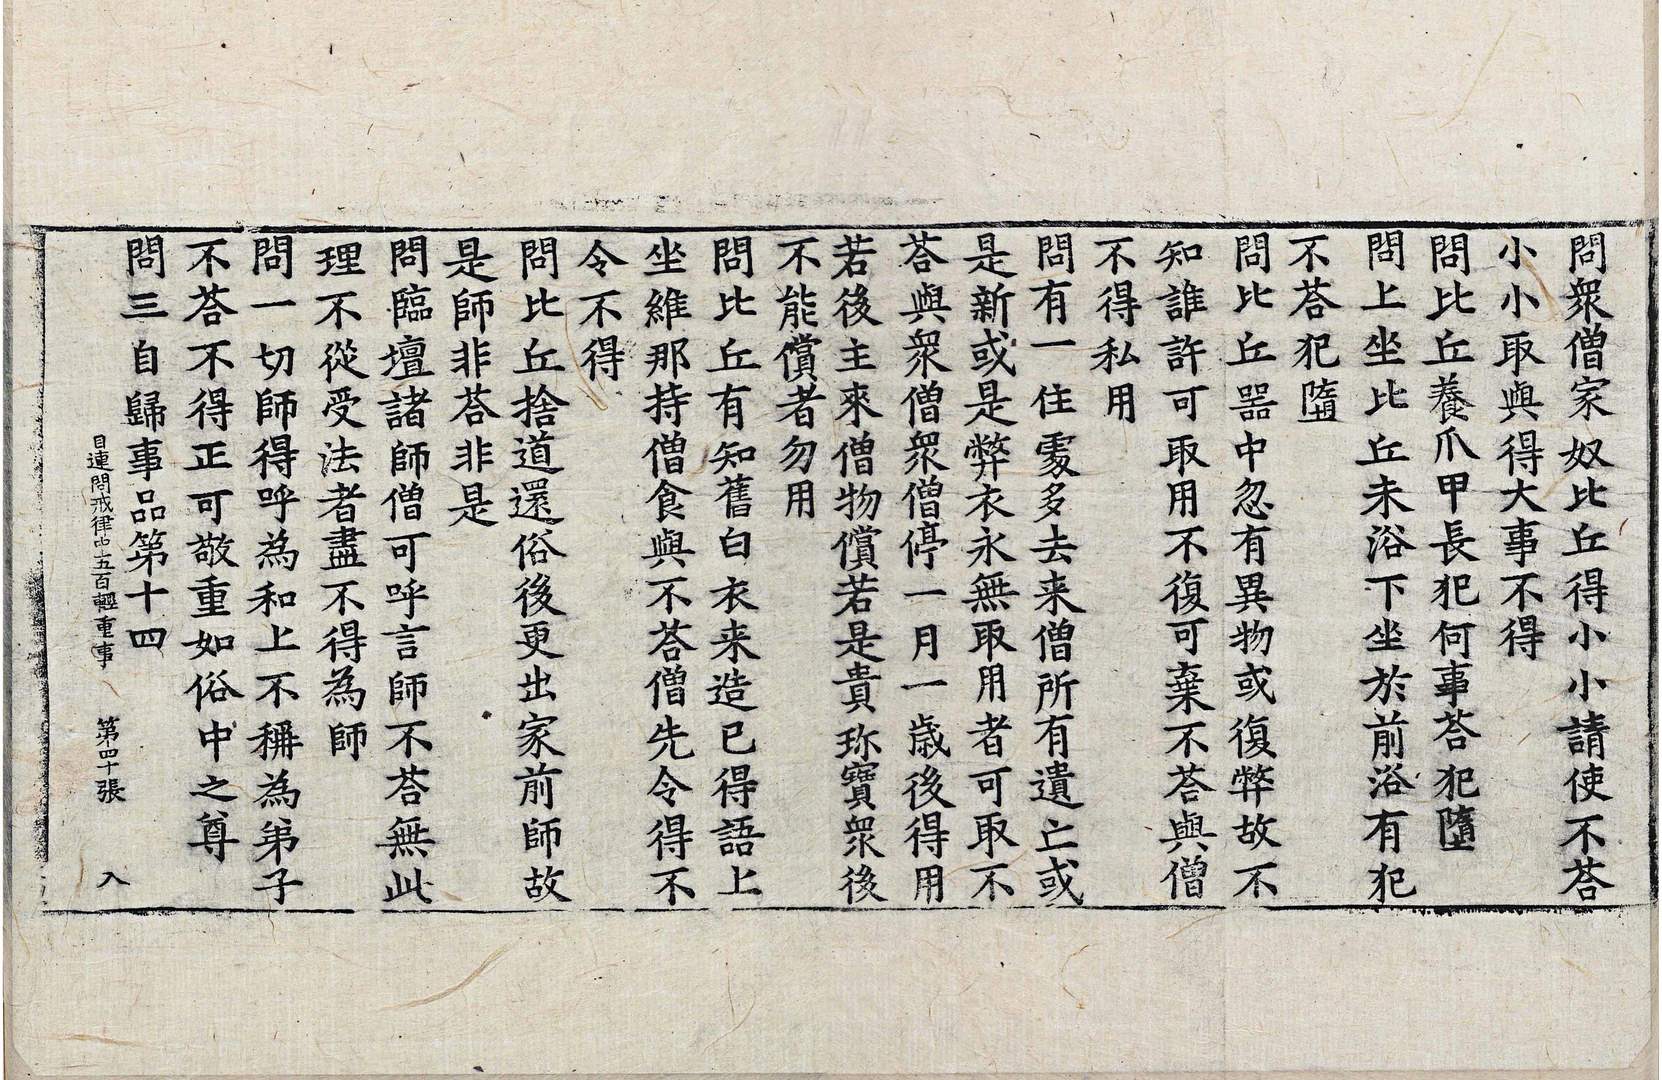 問衆僧家奴比丘得小小請使不荅
小小取與得大事不得
問比丘養爪甲長犯何事荅犯墮
問上坐比丘未浴下坐於前浴有犯
不荅犯墮
問比丘器中忽有異物或復弊故不
知誰許可取用不復可棄不荅與僧
不得私用
問有一住處多去来僧所有遺亡或
是新或是弊衣永無取用者可取不
荅與衆僧衆僧停一月一歳後得用
若後主來僧物償若是貴珎寶衆後
不能償者勿用
問比丘有知舊白衣来造已得語上
坐維那持僧食與不荅僧先令得不
令不得
問比丘捨道還俗後更出家前師故
是師非荅非是
問臨壇諸師僧可呼言師不荅無此
理不從受法者盡不得為師
問一切師得呼為和上不稱為弟子
不荅不得正可敬重如俗中之尊
問三自歸事品第十四
目連問戒律中五百輕重事 第四十張 入